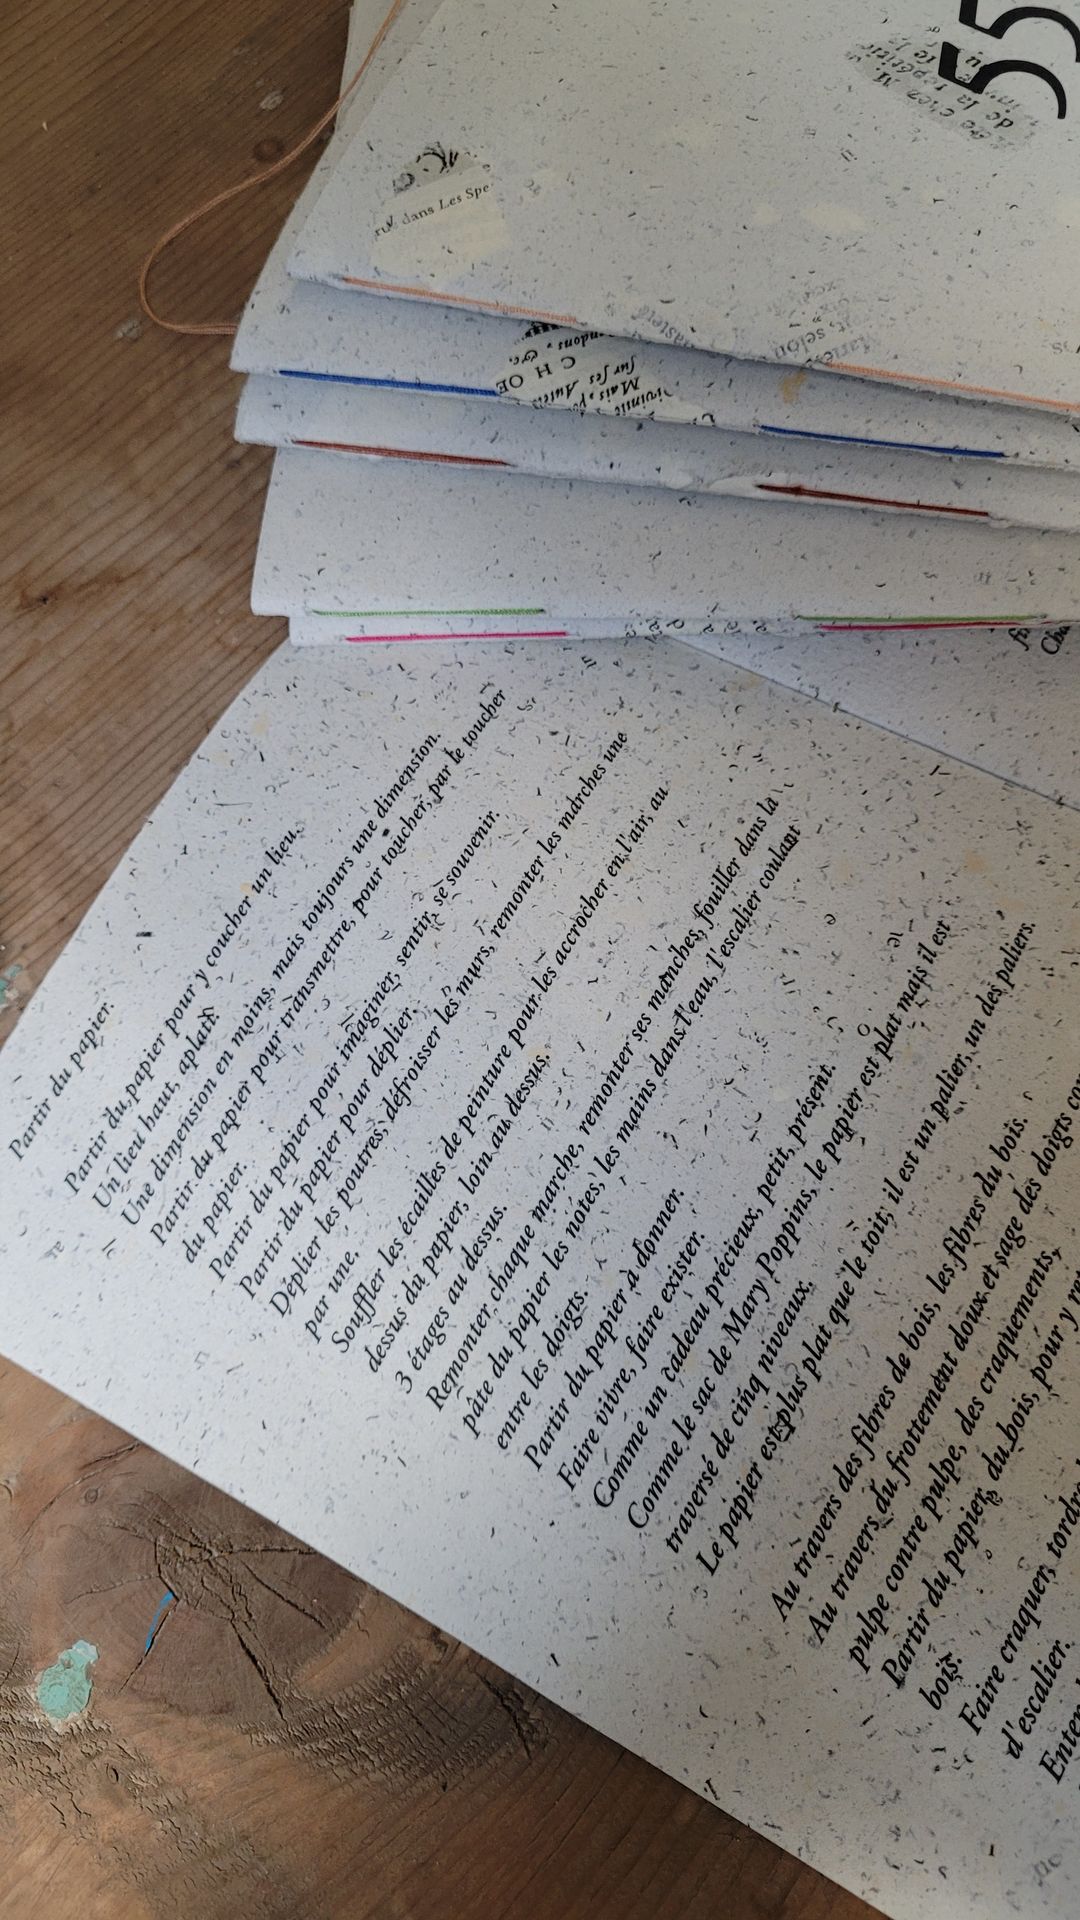 55
dans Les Spe
de la
selon
C H OE
sur ses Autels
Partir du papier.
Partir du papier pour y coucher un lieu.
Un lieu haut, aplati.
Une dimension en moins, mais toujours une dimension.
Partir du papier pour transmettre, pour toucher, par le toucher
du papier.
Partir du papier pour imaginer, sentir, se souvenir.
Partir du papier pour déplier.
Déplier les poutres, défroisser les murs, remonter les marches une
par une.
Souffler les écailles de peinture pour les accrocher en l'air, au
dessus du papier, loin au dessus.
3 étages au dessus.
Remonter chaque marche, remonter ses manches, fouiller dans la
pâte du papier les notes, les mains dans l'eau, l'escalier coulant
entre les doigts.
Partir du papier à donner.
Faire vivre, faire exister.
Comme un cadeau précieux, petit, présent.
Comme le sac de Mary Poppins, le papier est plat mais il est
traversé de cinq niveaux.
Le papier est plus plat que le toit, il est un palier, un des paliers.
Au travers des fibres de bois, les fibres du bois.
Au travers du frottement doux et sage des doigts
pulpe contre pulpe, des craquements,
Partir du papier, du bois, pour y
bois.
Faire craquer, tordre
d'escalier.